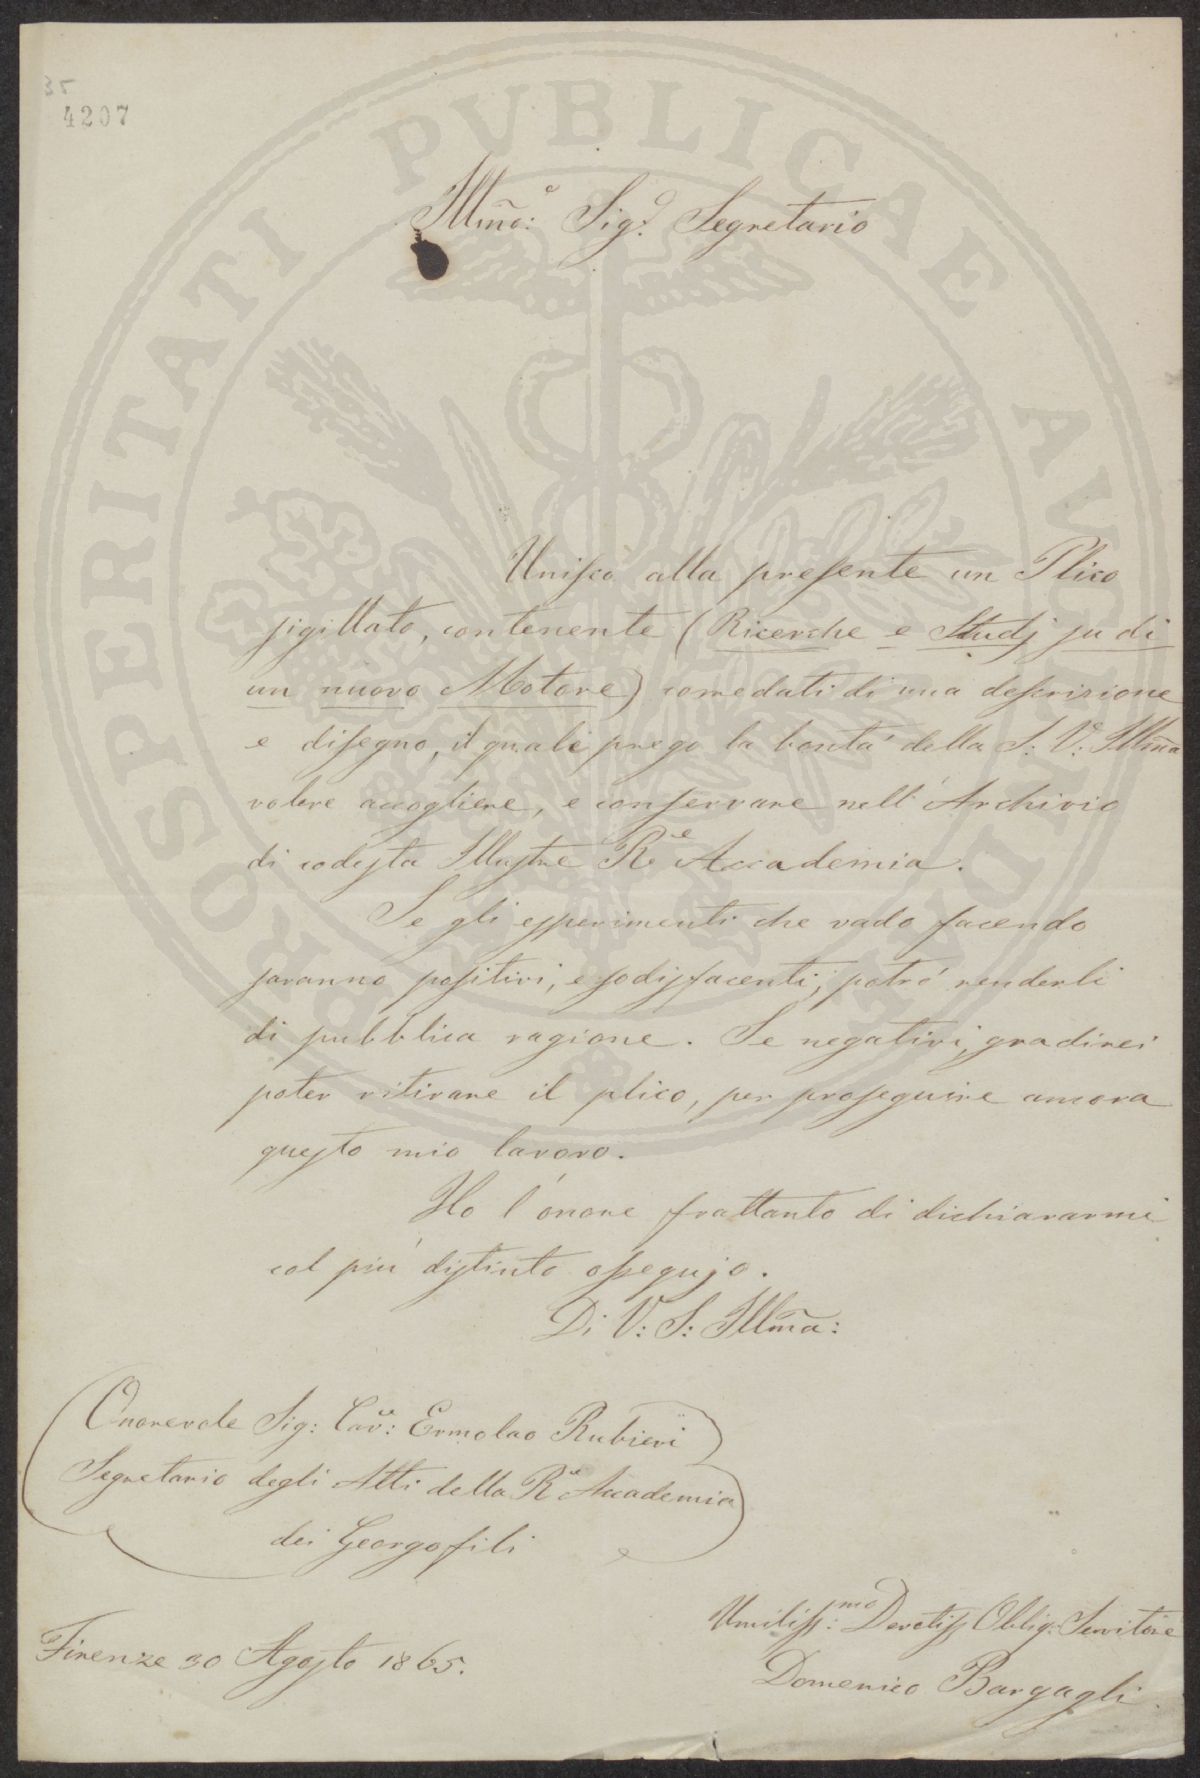 35
4207
PROSPERITATI PVBLICAE AVGENDAE
Illm̃o: Sig.e Segretario
Unisco alla presente un Plico
sigillato, contenente (Ricerche e Studj su di
un nuovo Motore) corredati di una descrizione
e disegno, il quale prego la bontá della S: V: Illm̃a
volere accogliere, e conservare nell'Archivio
di codesta Illustre R.e Accademia.
Se gli esperimenti che vado facendo
saranno positivi, e sodisfacenti, potró renderli
di pubblica ragione. Se negativi, gradirei
poter ritirare il plico, per proseguire ancora
questo mio lavoro.
Ho l'onore frattanto di dichiararmi
col piú distinto ossequjo.
Di V: S: Illm̃a:
Onorevole Sig: Cav.e: Ermolao Rubieri
Segretario degli Atti della R.e Accademia
dei Georgofili
Umiliss:mo Devotiss Oblig: Servitore
Firenze 30 Agosto 1865.
Domenico Bargagli